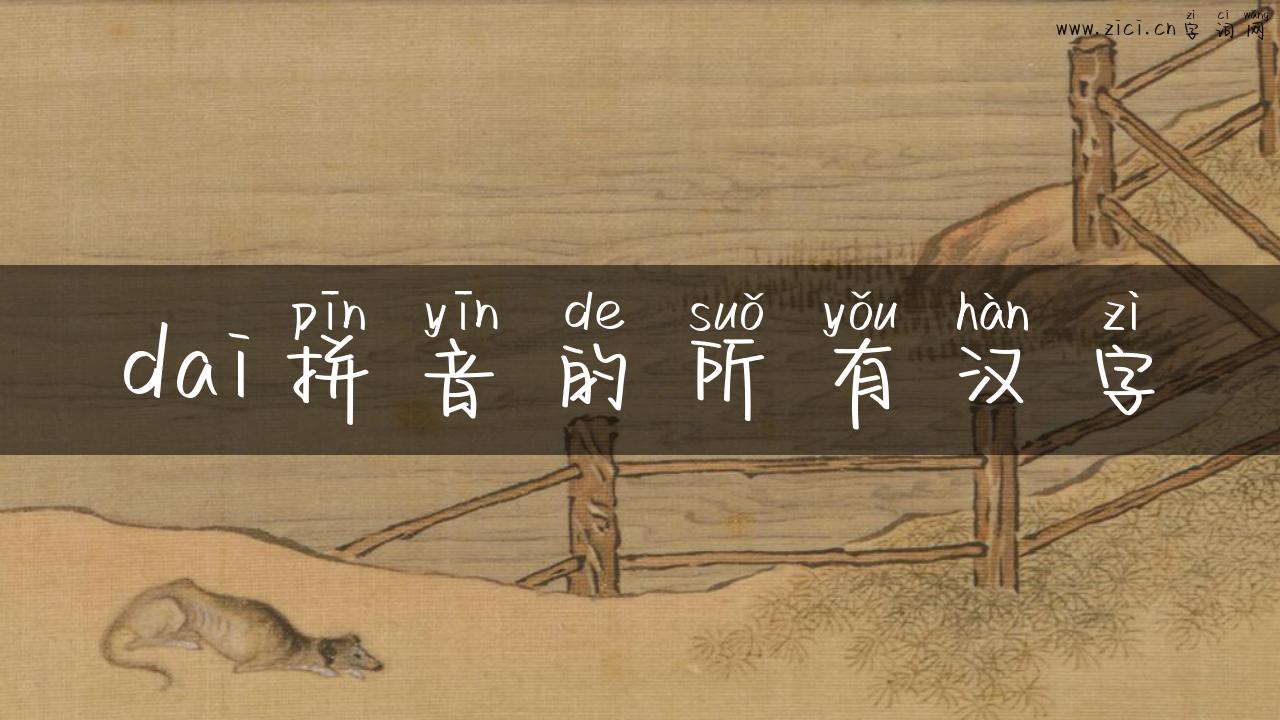 zì cí wǎng
www.zici.cn字词网
pīn yīn de suǒ yǒu hàn zì
dai拼音的所有汉字